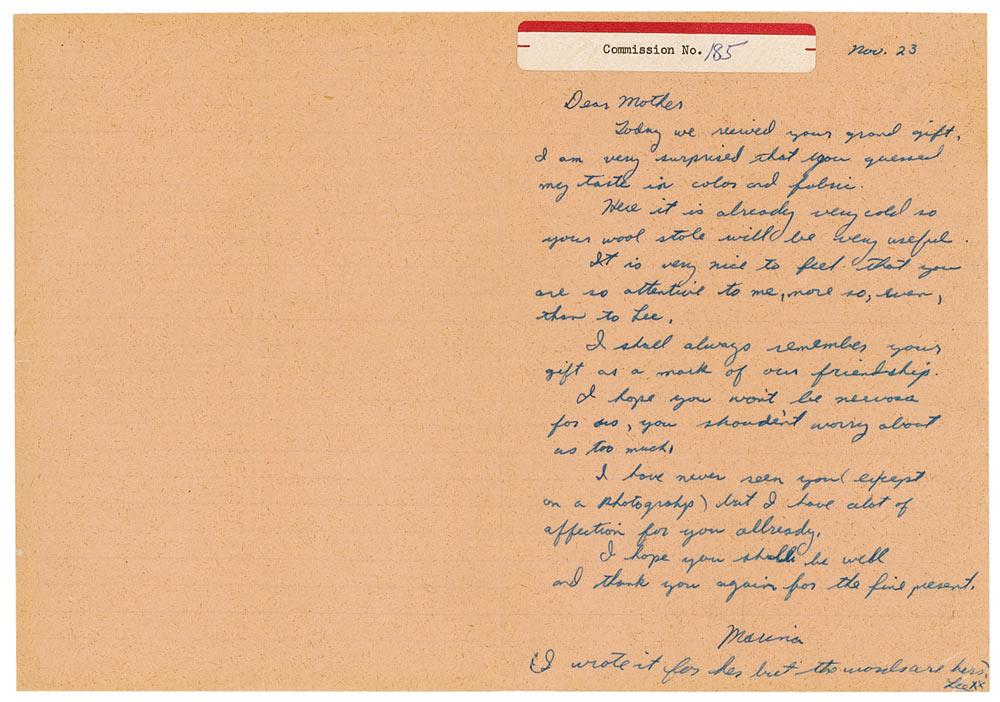 Commission No. 185
Nov. 23
Dear Mother
Today we reeived your grand gift.
I am very surprised that you guessed
my taste in color and fabric.
Here it is already very cold so
your wool stole will be very useful.
It is very nice to feel that you
are so attentive to me, more so, even,
than to Lee.
I shall always remember your
gift as a mark of our friendship.
I hope you won't be nervoss
for us, you shoulde'nt worry about
us too much.
I have never seen you (except
on a photograhp) but I have alot of
affection for you allready.
I hope you shall be well
and thank you again for the fine present.
Marina
(I wrote it for her but the words are hers.
Lee XX